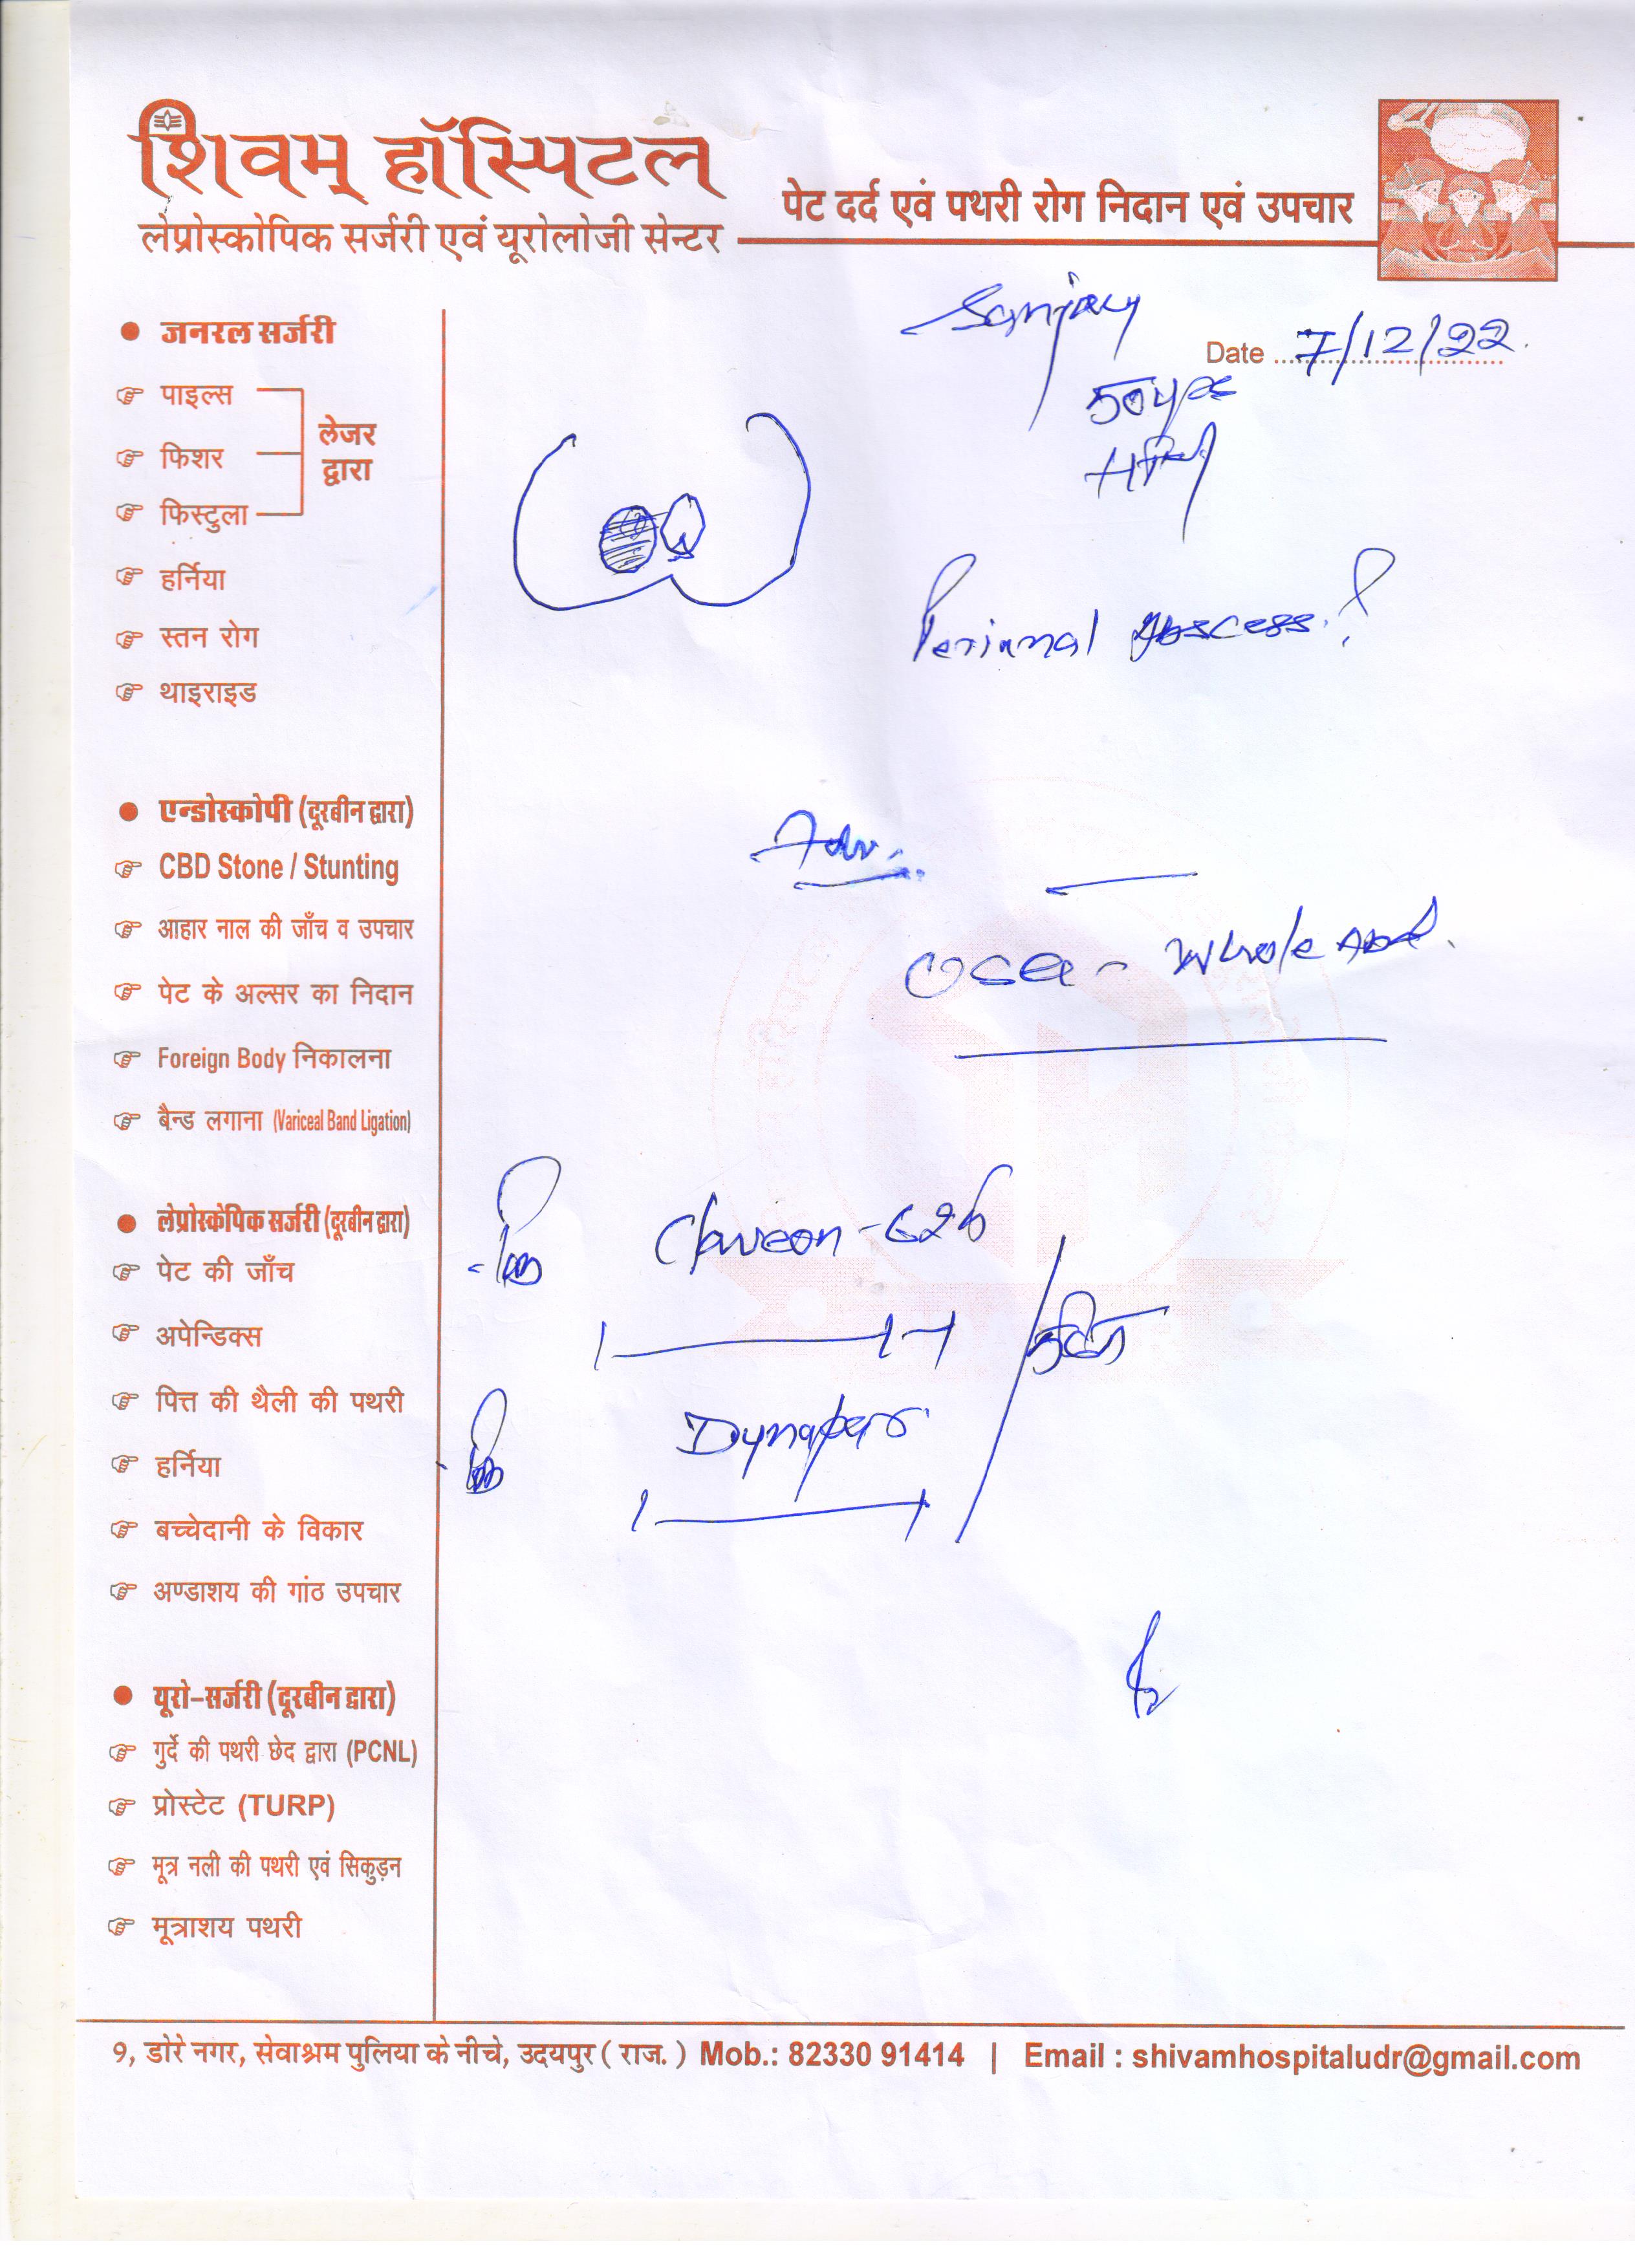 शिवम् हॉस्पिटल
लेप्रोस्कोपिक सर्जरी एवं यूरोलोजी सेन्टर
पेट दर्द एवं पथरी रोग निदान एवं उपचार
Sanjay
Date 7/12/22
50yrs
Perianal Abscess ?
Adv.
USG - Whole Abd.
Claveon-625
5 दिन
Dynapar
• जनरल सर्जरी
पाइल्स
फिशर
फिस्टुला
लेजर
द्वारा
हर्निया
स्तन रोग
थाइराइड
• एन्डोस्कोपी (दूरबीन द्वारा)
CBD Stone / Stunting
आहार नाल की जाँच व उपचार
पेट के अल्सर का निदान
Foreign Body निकालना
बैन्ड लगाना (Variceal Band Ligation)
• लेप्रोस्कोपिक सर्जरी (दूरबीन द्वारा)
पेट की जाँच
अपेन्डिक्स
पित्त की थैली की पथरी
हर्निया
बच्चेदानी के विकार
अण्डाशय की गांठ उपचार
• यूरो-सर्जरी (दूरबीन द्वारा)
गुर्दे की पथरी छेद द्वारा (PCNL)
प्रोस्टेट (TURP)
मूत्र नली की पथरी एवं सिकुड़न
मूत्राशय पथरी
9, डोरे नगर, सेवाश्रम पुलिया के नीचे, उदयपुर ( राज. ) Mob.: 82330 91414 | Email : shivamhospitaludr@gmail.com